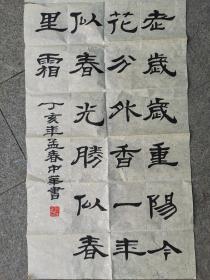 老歲歲重陽今
花分外香一年
似春光勝似春
里霜
丁亥年孟春中華書